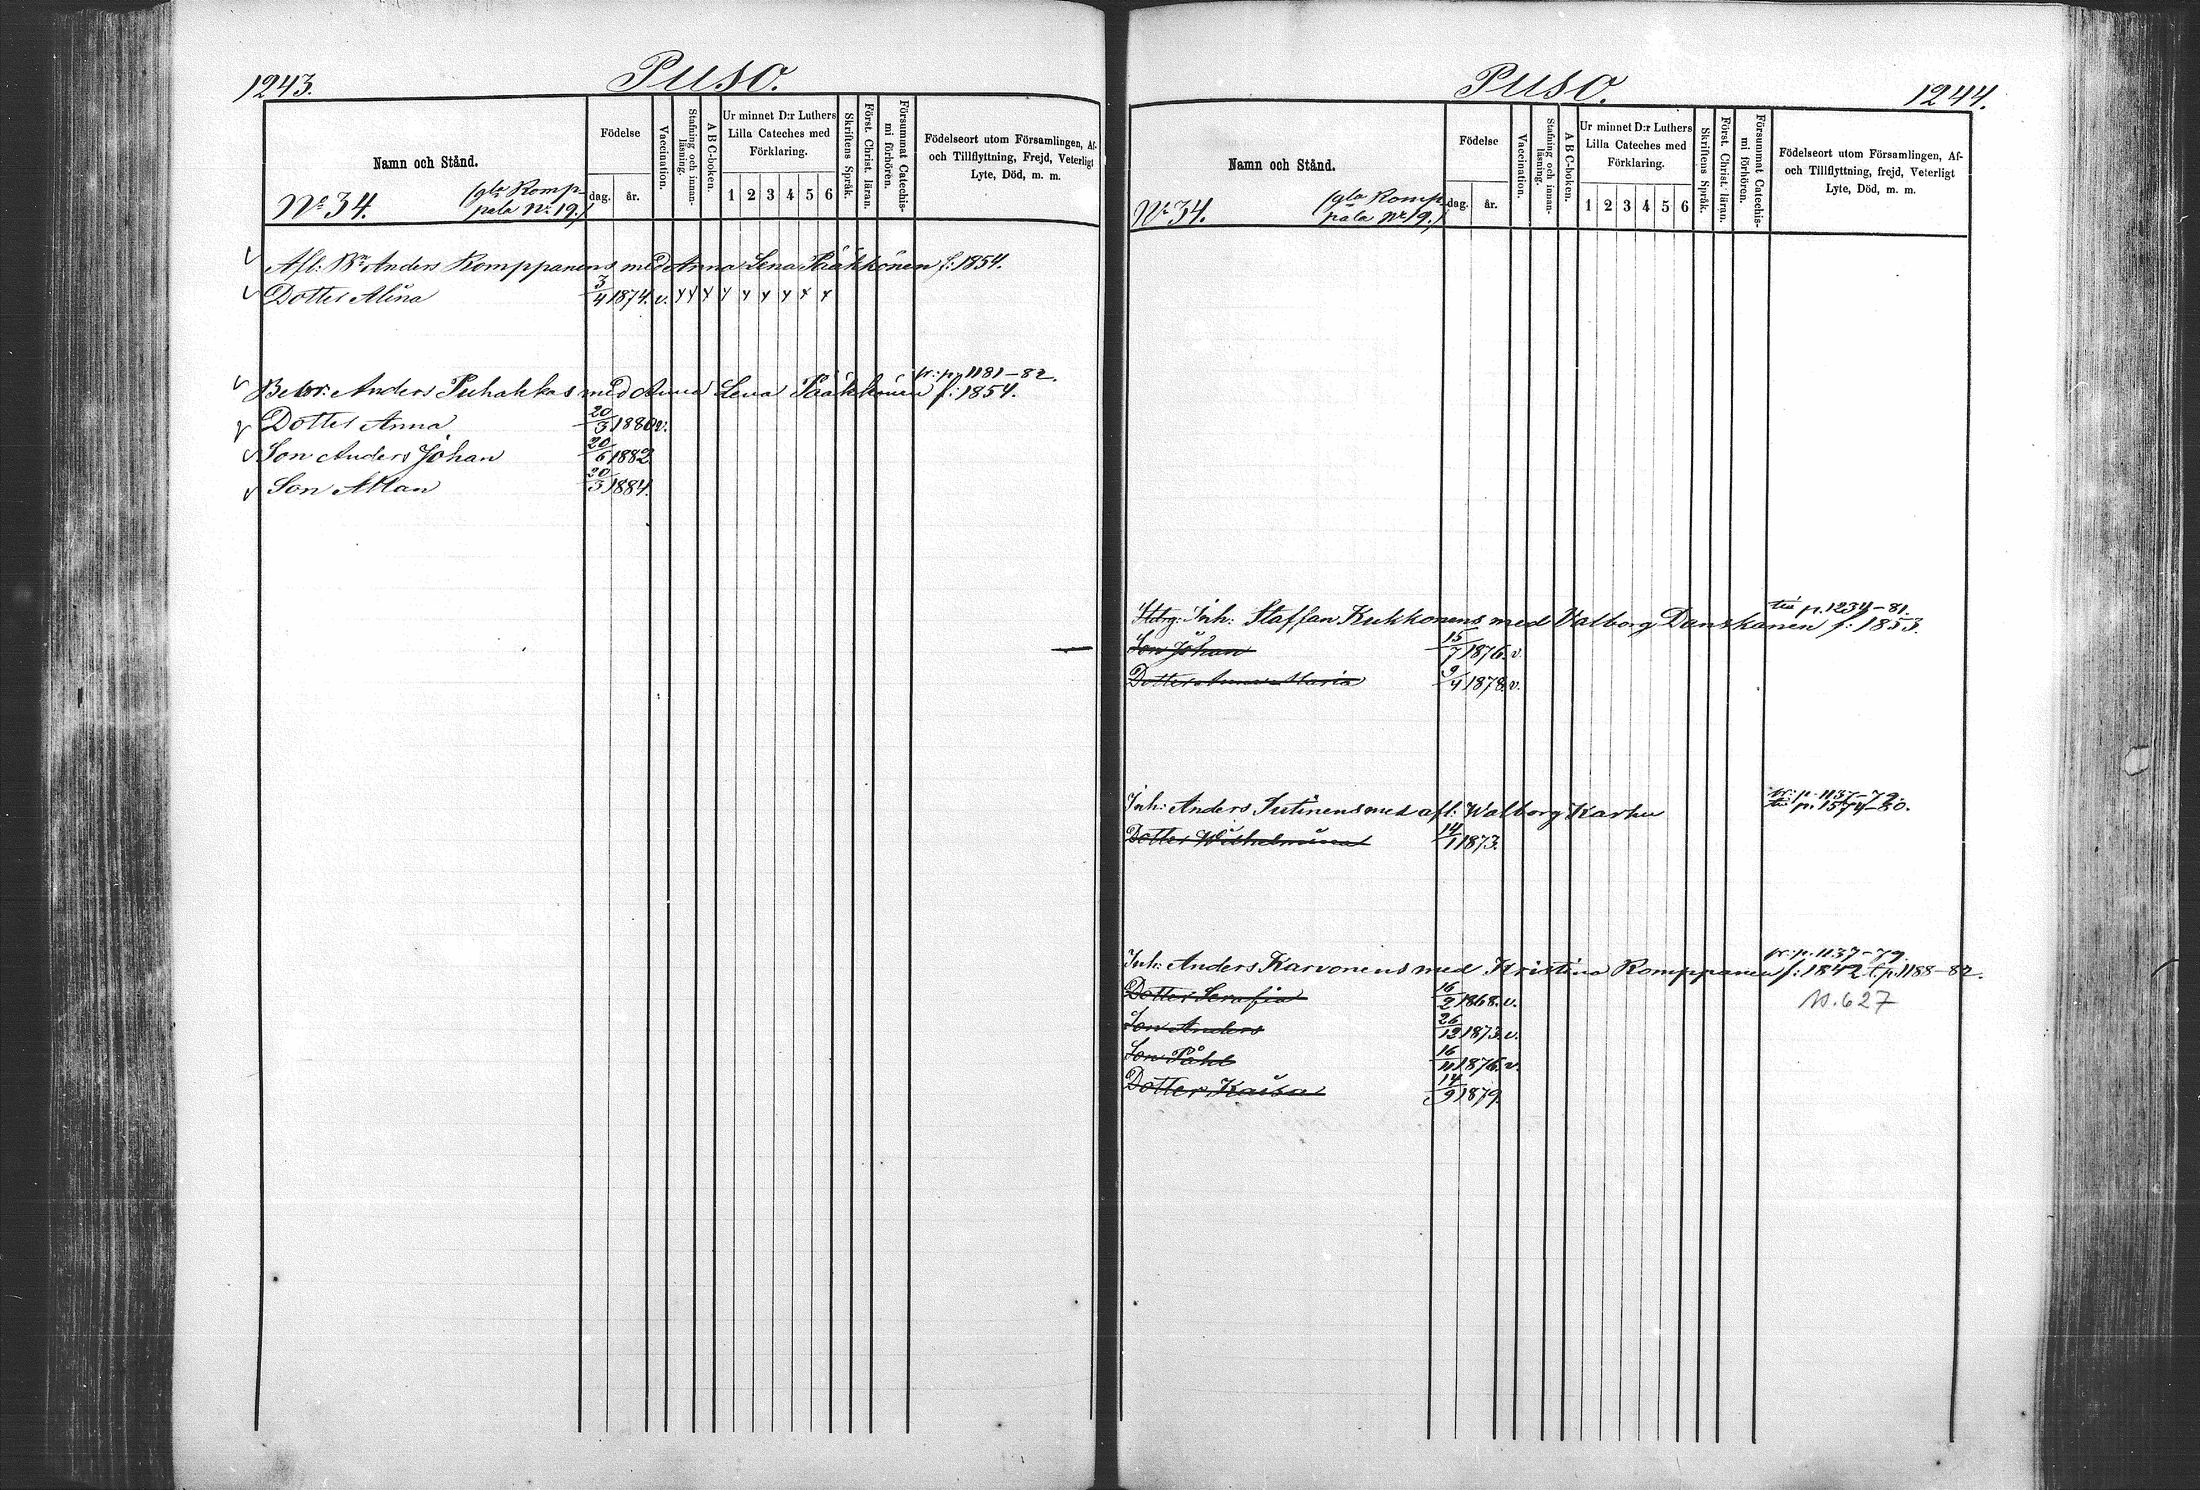 1243.
Puso.
Namn och Stånd.
Födelse
dag.
år.
Vaccination.
Stafning och innanläsning.
A B C-boken.
Ur minnet D:r Luthers
Lilla Cateches med
Förklaring.
1 2 3 4 5 6
Skriftens Språk.
Först. Christ. läran.
Försummat Catechismi förhören.
Födelseort utom Församlingen, Af-
och Tillflyttning, Frejd, Veterligt
Lyte, Död, m. m.
No 34.
(gla Komp-
pala No 19.)
Afl: Bn Anders Komppanens med Anna Lena Räkkönen f: 1854.
Dotter Alina 3/4 1874. v.
fr: p. 1181–82.
Anders Puhakkas med Anna Lena Räkkönen f: 1854.
Dotter Anna 20/3 1880 v.
Son Anders Johan 20/6 1882
Son Allan 20/3 1884.
Puso.
1244.
Namn och Stånd.
Födelse
dag.
år.
Vaccination.
Stafning och innanläsning.
A B C-boken.
Ur minnet D:r Luthers
Lilla Cateches med
Förklaring.
1 2 3 4 5 6
Skriftens Språk.
Först. Christ. läran.
Försummat Catechismi förhören.
Födelseort utom Församlingen, Af-
och Tillflyttning, frejd, Veterligt
Lyte, Död, m. m.
No 34.
(gla Komp-
pala No 19.)
till p. 1234–81.
Inh: Staffan Kukkonens med Valborg Danskanen f: 1853.
Son Johan 15/7 1876. v.
Dotter Anna Maria 9/4 1878. v.
fr: p. 1137–79.
Inh: Anders Sutinens med afl: Walborg Karhu till p. 1574–80.
Dotter Wilhelmina 14/1 1873.
fr: p. 1137–79.
Inh: Anders Karvonens med Kristina Komppanen f: 1842 t. p. 1188–82.
Dotter Serafia 16/2 1868. v.
N. 627
Son Anders 26/12 1873. v.
Son Påhl 16/11 1876. v.
Dotter Kaisa 14/9 1879.